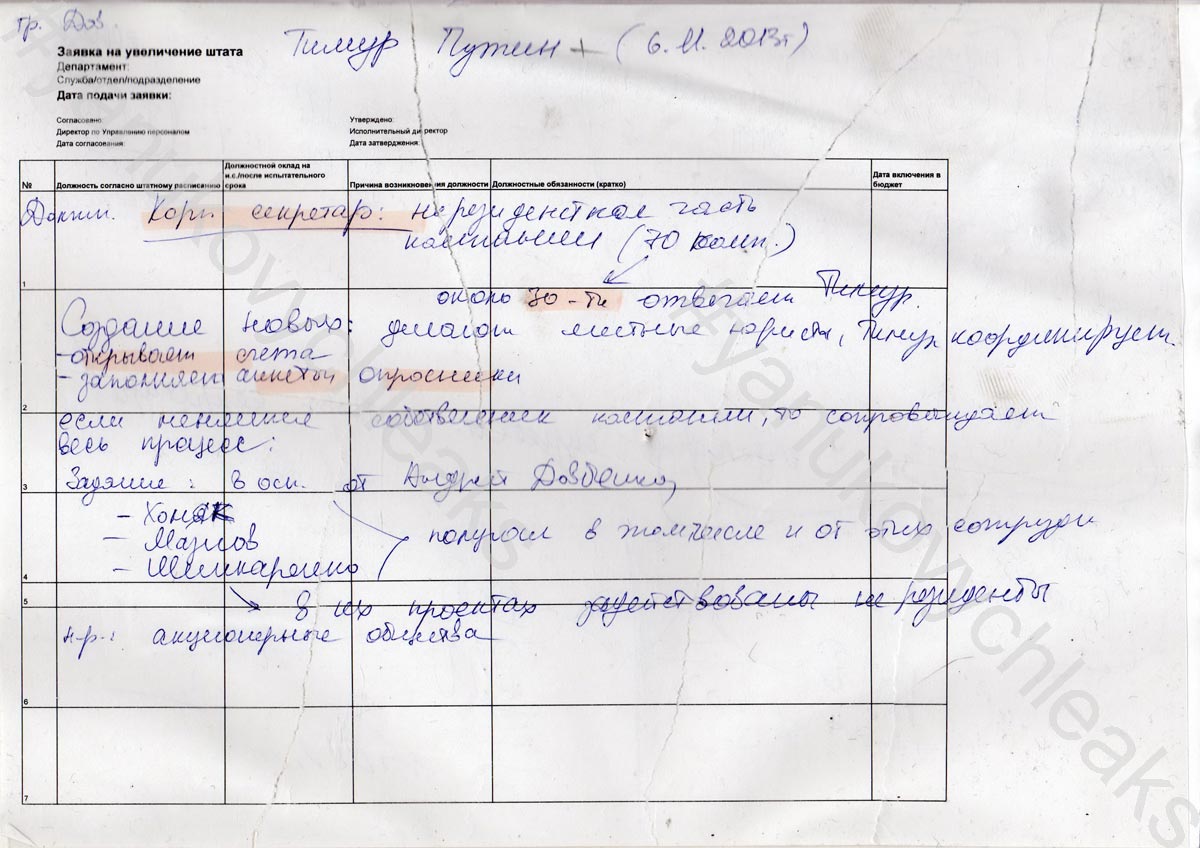 гр. Дов.
Тимур Путин + (6.11.2013г)
Заявка на увеличение штата
Департамент:
Служба/отдел/подразделение
Дата подачи заявки:
Согласовано:
Директор по Управлению персоналом
Дата согласования:
Утверждено:
Исполнительный директор
Дата затверждения:
№
Должность согласно штатному расписанию
Должностной оклад на и.с./после испытательного срока
Причина возникновения должности
Должностные обязанности (кратко)
Дата включения в бюджет
Корп секретарь: нерезидентная часть
компании (70 комп.)
1
около 30-ти отвечает Тимур.
Создание новых: делают местные юристы, Тимур координирует.
- открывает счета
- заполняет анкеты опросники
2
если меняется собственник компании, то сопровождает
весь процесс:
3
Задание: в осн. от Андрей Довбенко,
- Хомяк
- Мазнов
- Шинкаренко
получал в том числе и от этих сотрудн
4
5
в их проектах задействованы не резиденты
н-р: акционерные общества
6
7
#yanukovychleaks
#yanukovychleaks